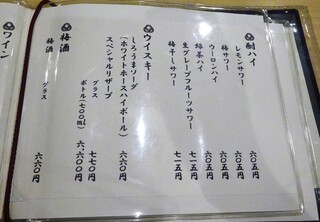 酎ハイ
レモンサワー 六〇五円
梅サワー 六〇五円
ウーロンハイ 六〇五円
緑茶ハイ 六〇五円
生グレープフルーツサワー 七一五円
梅干しサワー 七一五円
ウイスキー
しろうまソーダ
(ホワイトホースハイボール) 六六〇円
スペシャルリザーブ
グラス 七七〇円
ボトル(七〇〇ml) 六、六〇〇円
梅酒
梅酒 グラス 六六〇円
ワイン